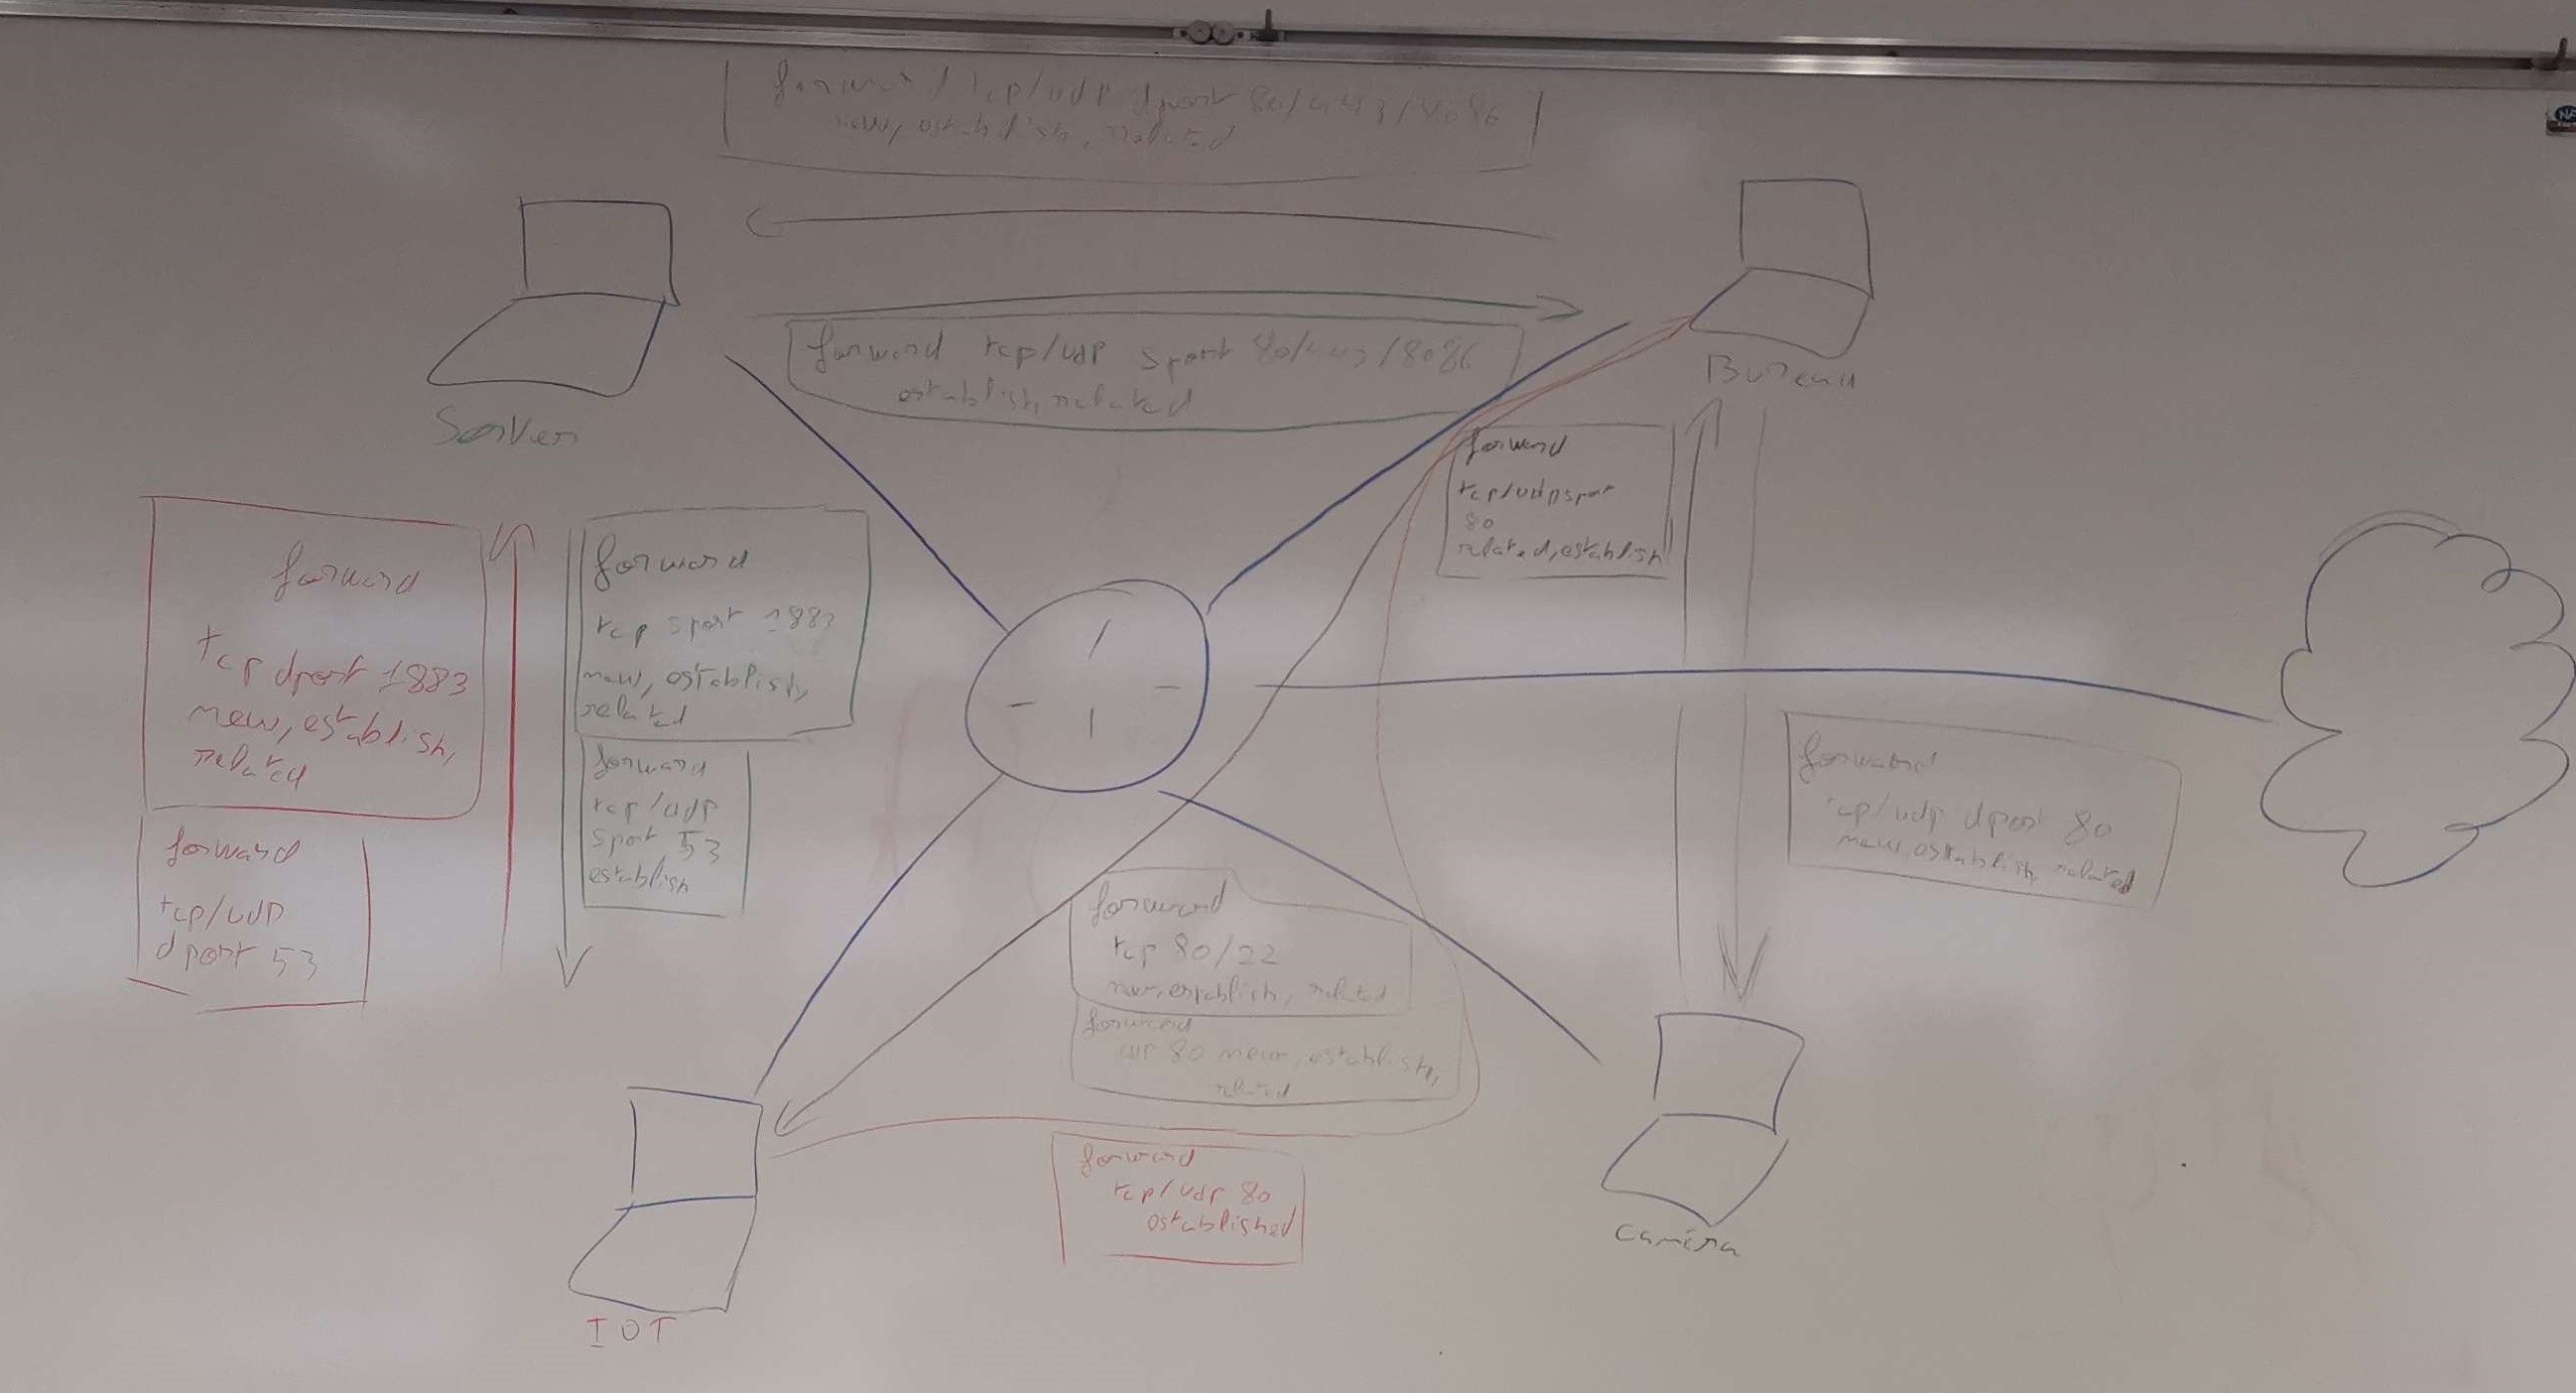 forward tcp/udp dport 80/443/8086
new, establish, related
forward tcp/udp sport 80/443/8086
establish, related
Server
Bureau
forward
tcp/udp sport
80
related, establish
forward
tcp dport 1883
new, establish,
related
forward
tcp/udp
dport 53
forward
tcp sport 1883
new, establish,
related
forward
tcp/udp
sport 53
establish
forward
tcp/udp dport 80
new, establish, related
forward
tcp 80/22
new, establish, related
forward
80 new, establish,
related
forward
tcp/udp 80
established
IOT
caméra